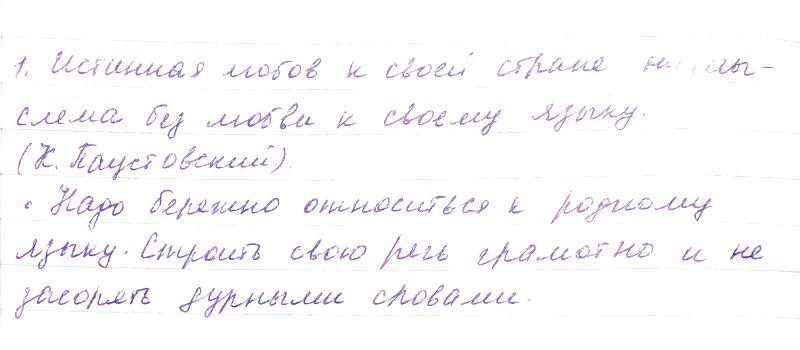 1. Истинная любов к своей стране немы-
слема без любви к своему языку.
(К. Паустовский).
• Надо бережно относиться к родному
языку. Строить свою речь грамотно и не
засорять дурными словами.